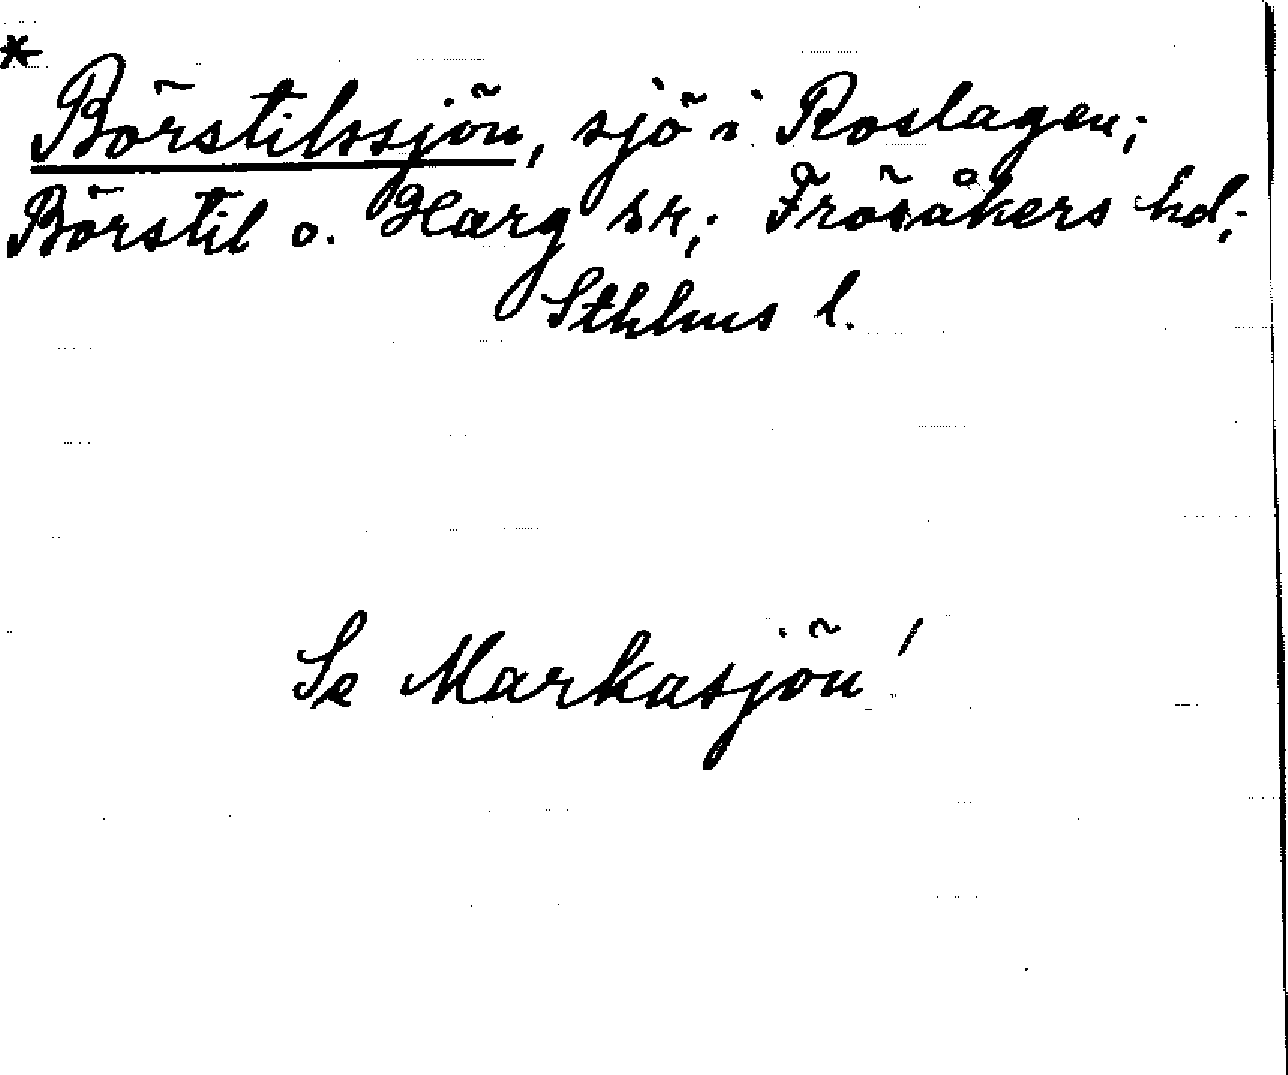 *
Börstilssjön, sjö i Roslagen;
Börstil o. Harg sn; Frösåkers hd;
Sthlms l.
Se Markasjön!